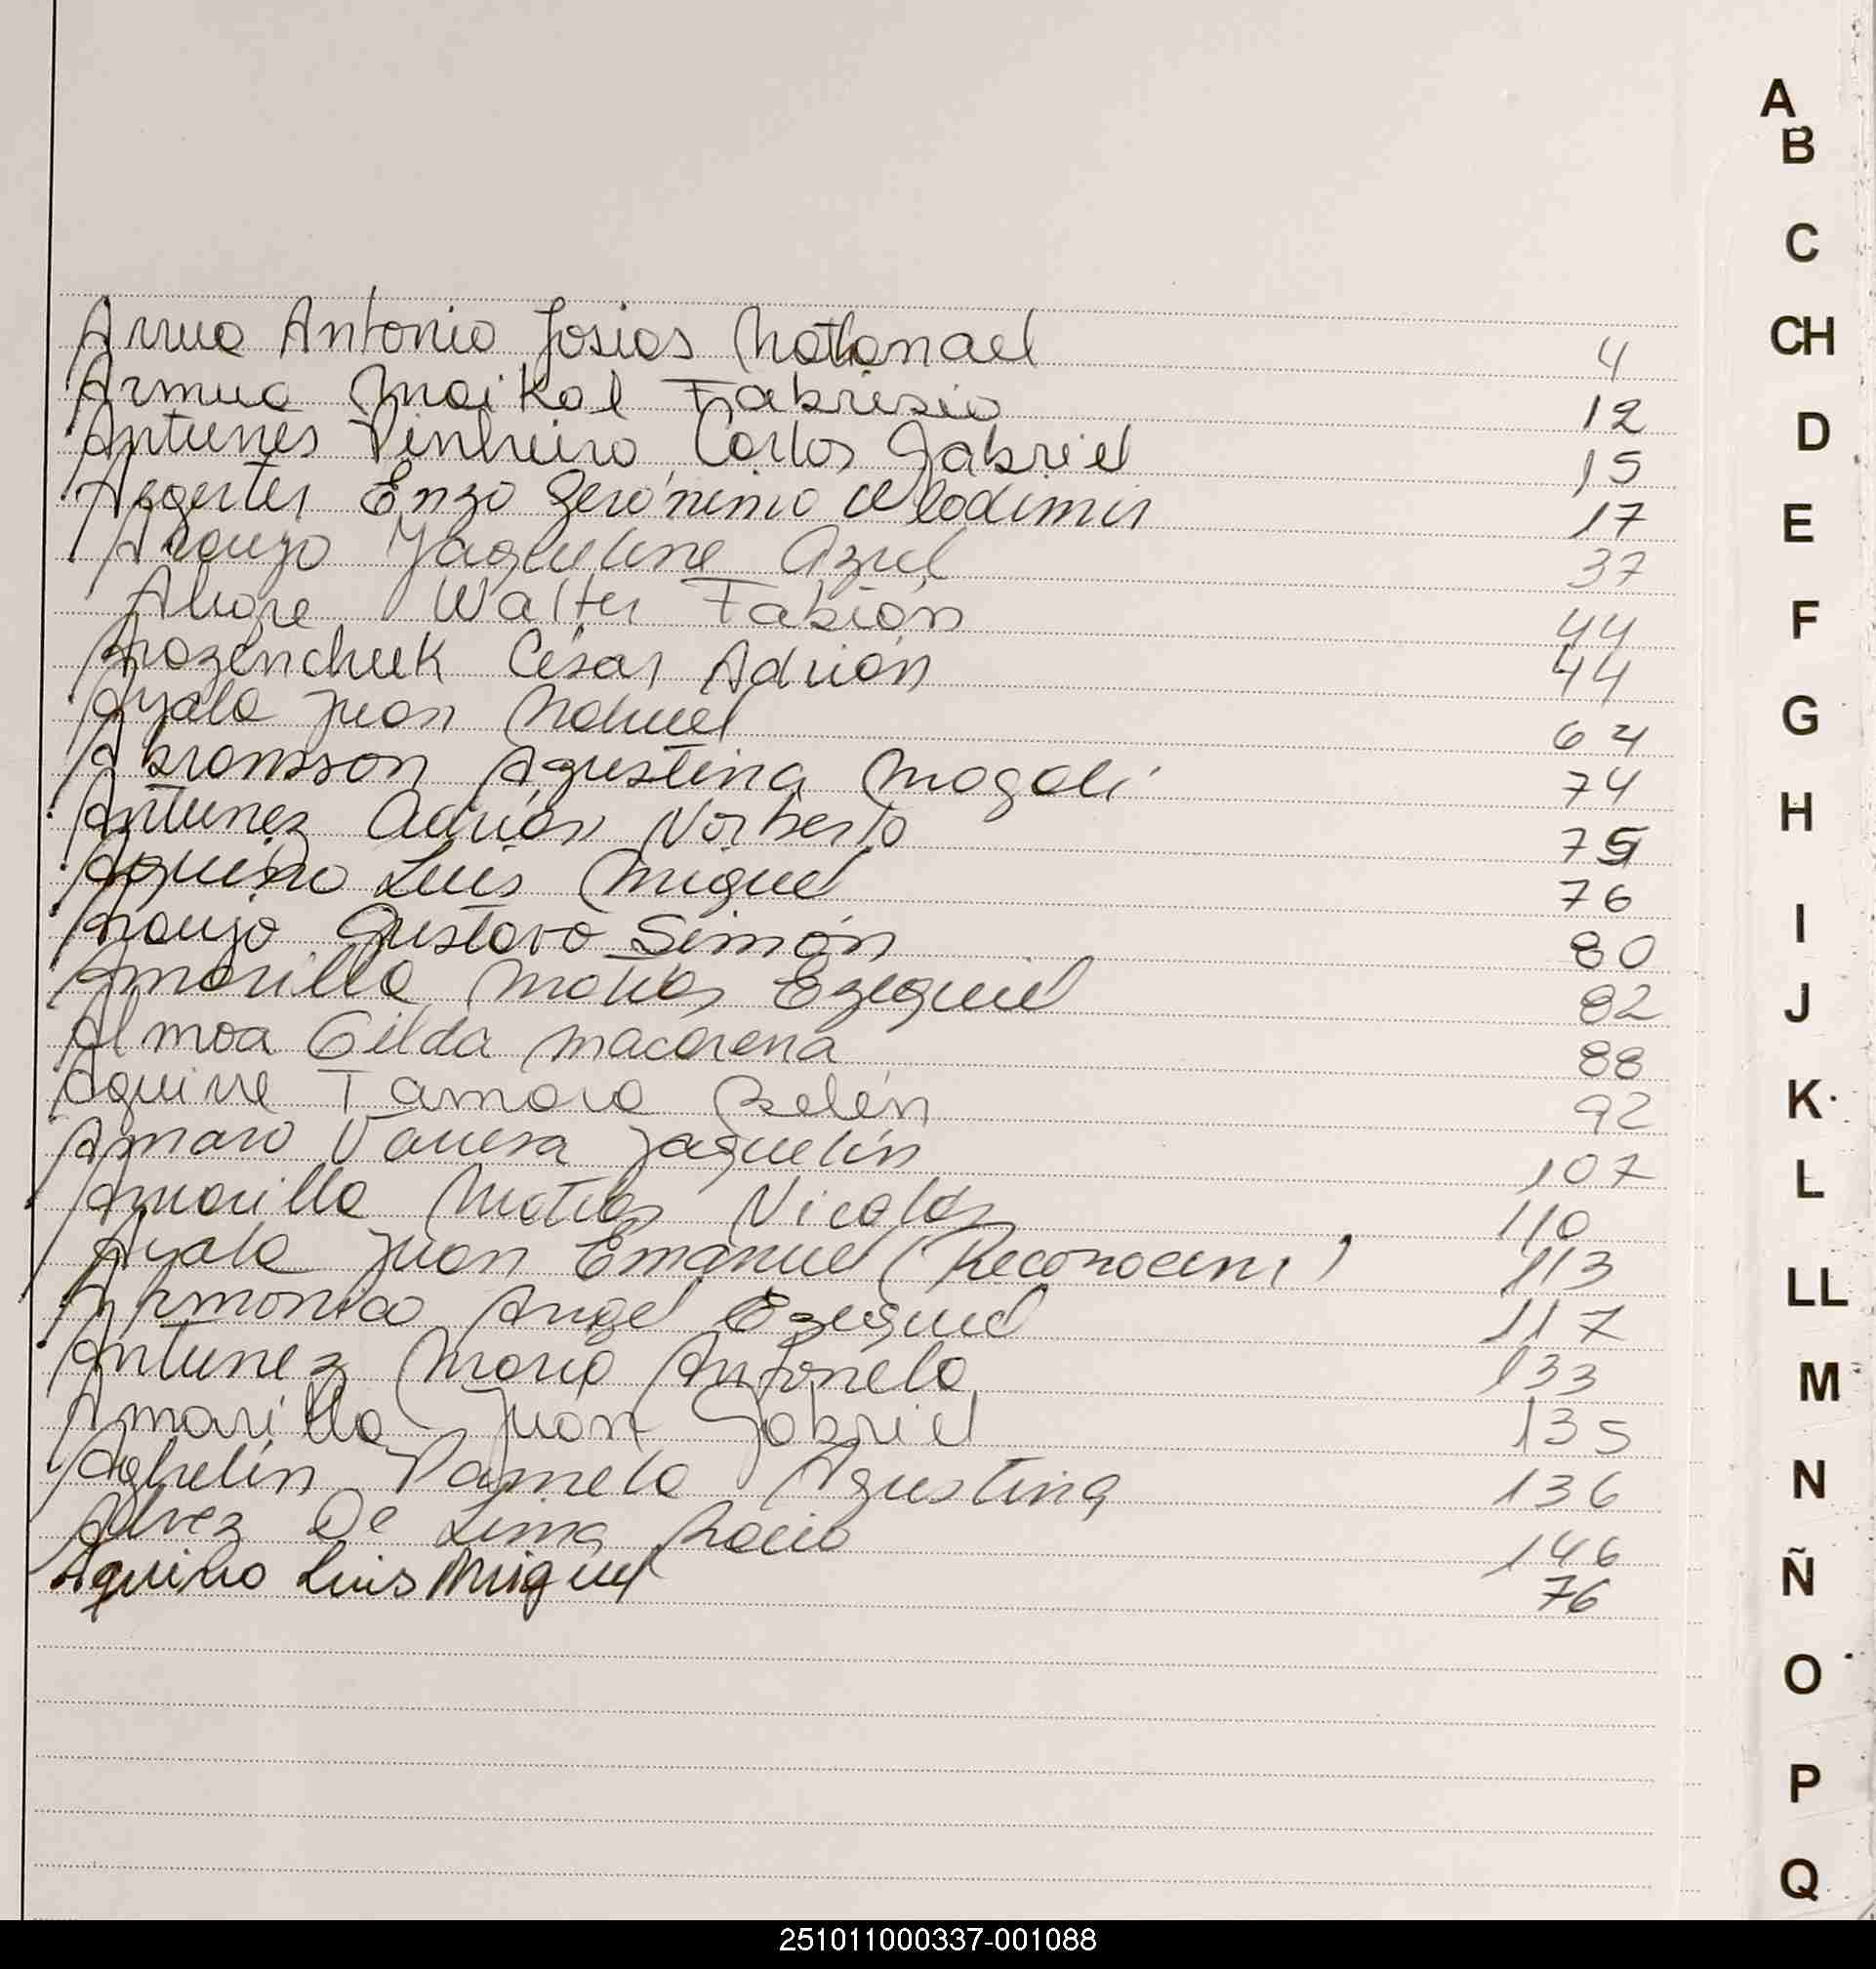 Arrua Antonio Josias Nathanael 4
Armua Maikol Fabrisio 12
Antunes Pinheiro Carlos Gabriel 15
Aegerter Enzo Gerónimo Wlodimir 17
Araujo Yaqueline Azul 37
Alegre Walter Fabián 44
Arozenchuk César Adrián 44
Ayala Juan Nahuel 64
Abramsson Agustina Magali 74
Antunez Adrián Norberto 75
Aquino Luis Miguel 76
Araujo Gustavo Simón 80
Amarilla Matias Ezequiel 82
Almoa Gilda Macarena 88
Aguirre Tamara Belén 92
Amaro Vanesa Jaquelín 107
Amarilla Matias Nicolás 110
Ayala Juan Emanuel (Reconocim) 113
Armonico Angel Ezequiel 117
Antunez Maria Antonela 133
Amarilla Juan Gabriel 135
Aghelín Pamela Agustina 136
Alvez De Lima Rocio 146
Aquino Luis Miguel 76
A
B
C
CH
D
E
F
G
H
I
J
K
L
LL
M
N
Ñ
O
P
Q
251011000337-001088